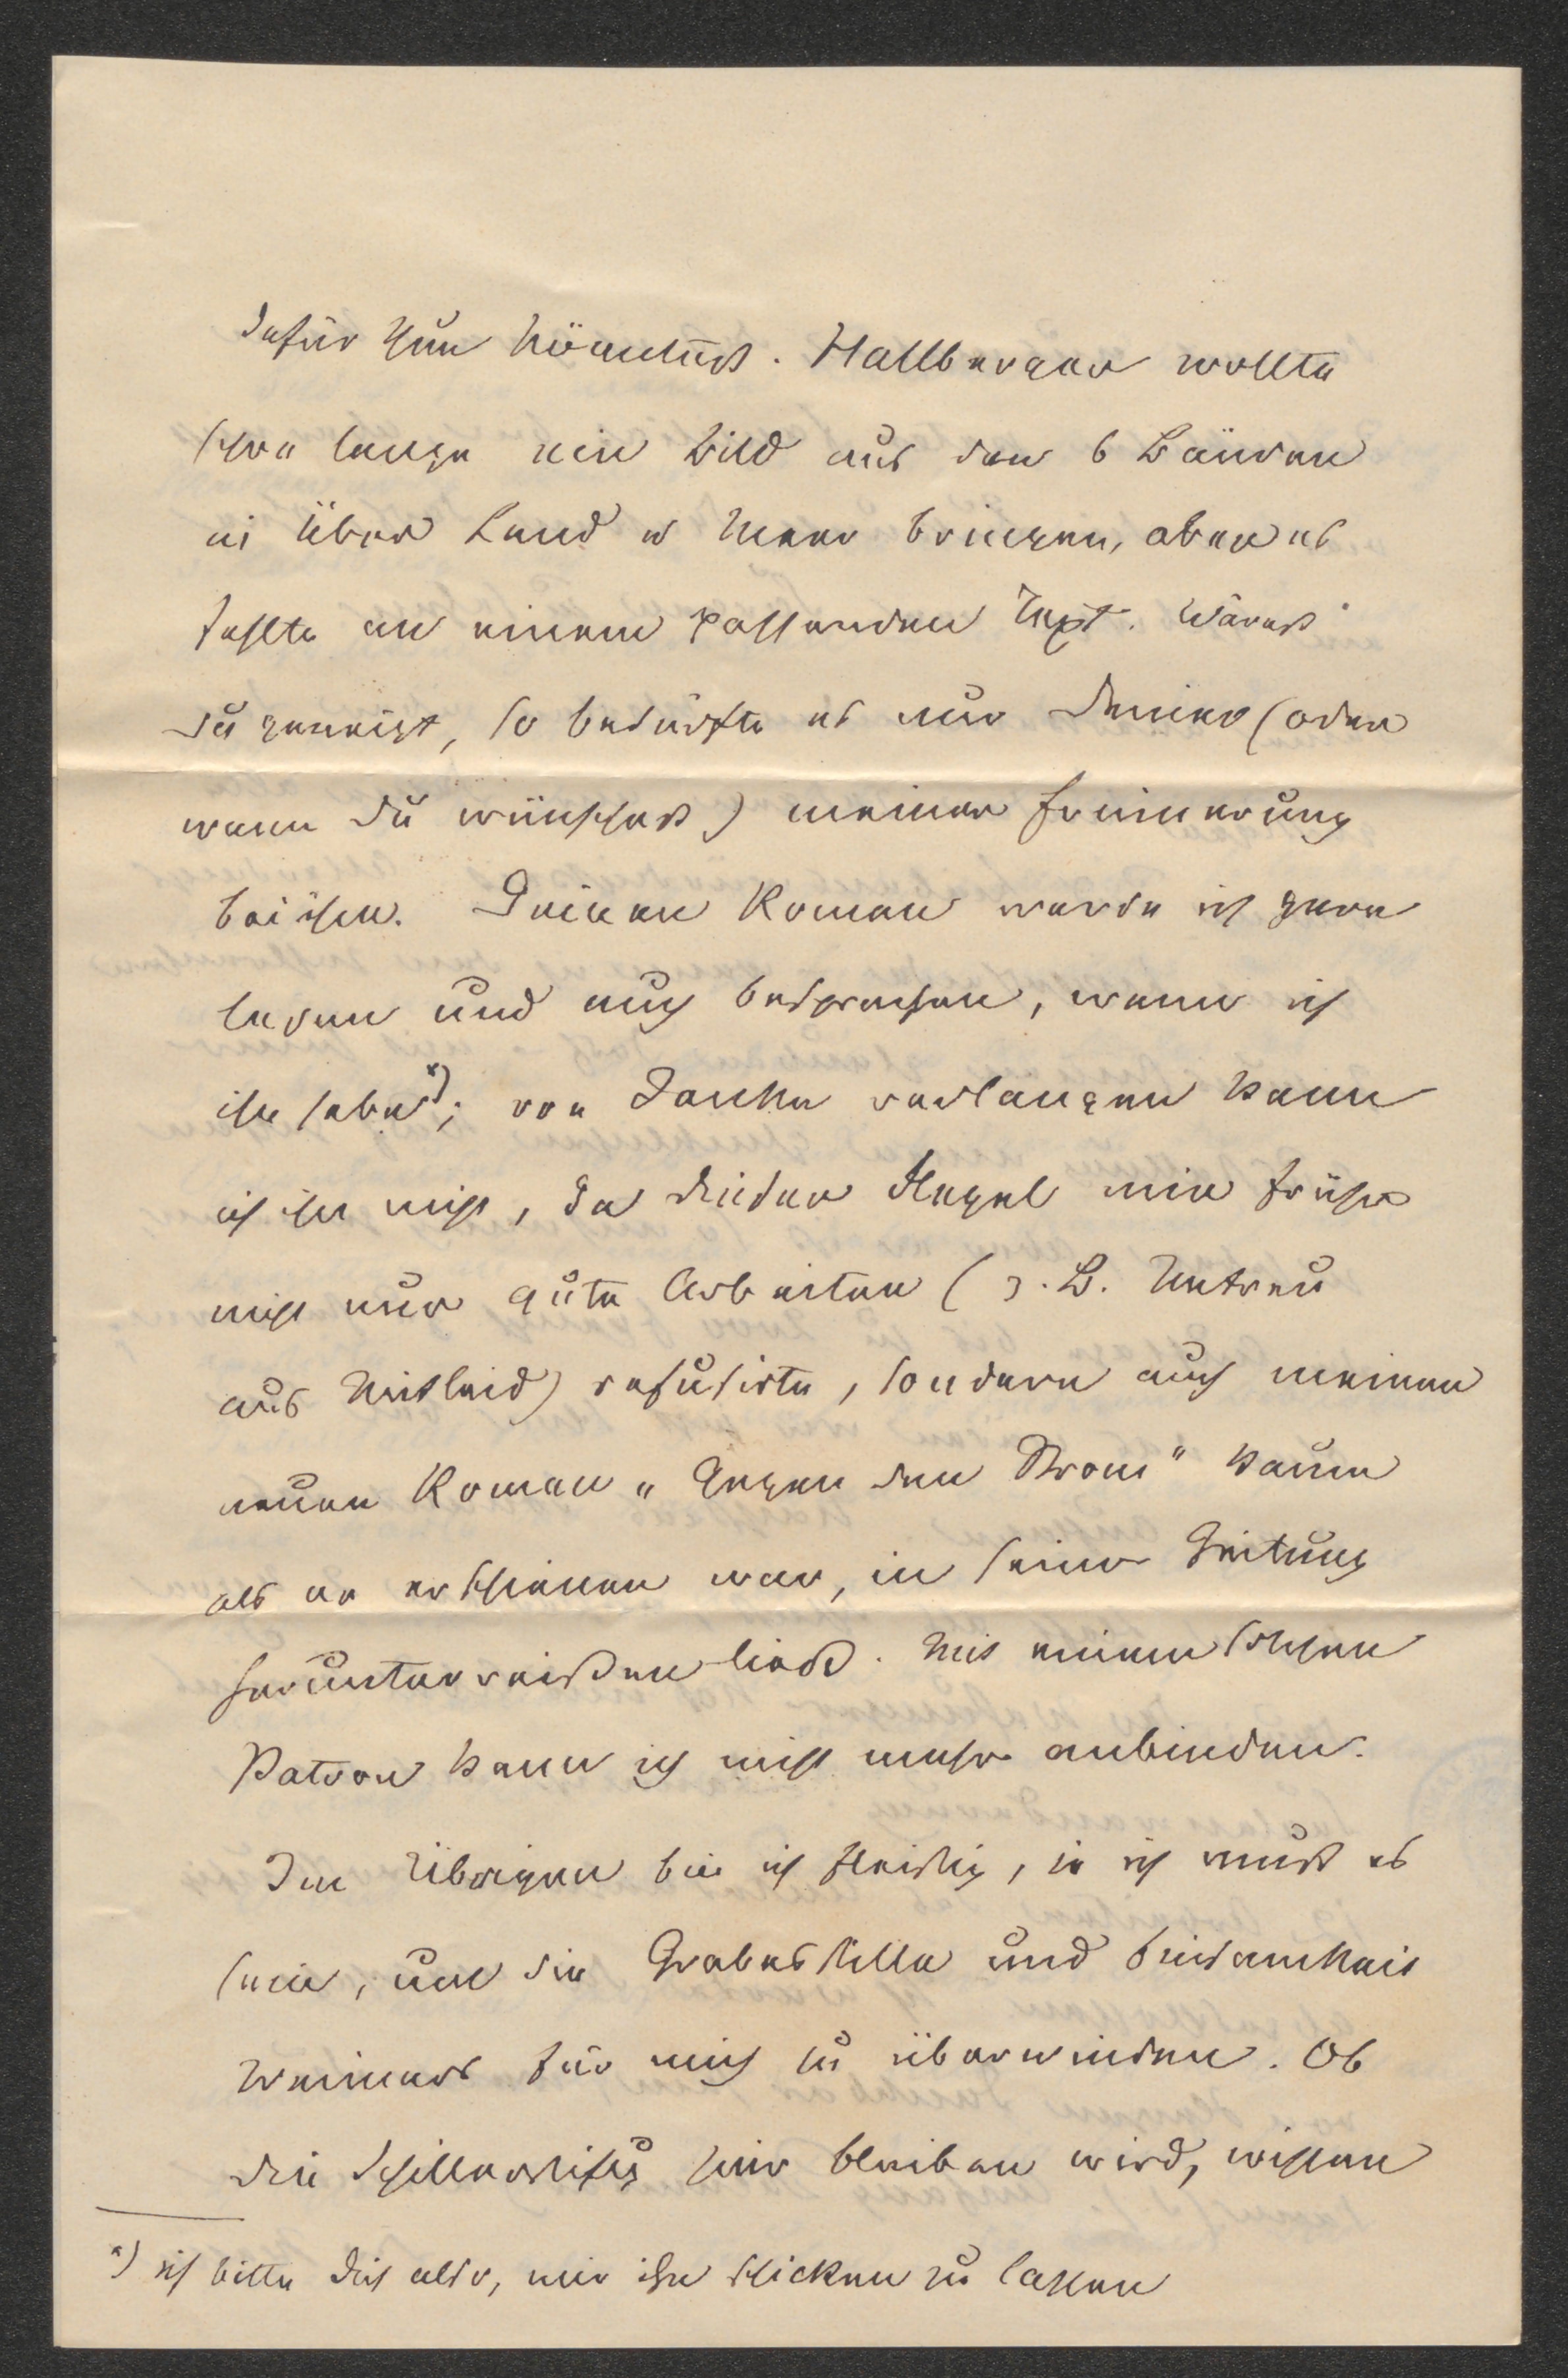 dafür thun könntest. Hallberger wollte
schon lange ein Bild aus den 6 Bänden
in Über Land u Meer bringen, aber es
fehlte an einem passenden Text. Wärest
du geneigt, so bedürfte es nur Deiner (oder
wenn du wünschest) meiner Erinnerung
bei ihm. Deinen Roman werde ich gern
lesen und auch besprechen, wenn ich
ihn habe*); von Janke verlangen kann
ich ihn nicht, da dieser Flegel mir früher
nicht nur gute Arbeiten (z. B. Untreu
aus Mitleid) refusirte, sondern auch meinen
neuen Roman „Gegen den Strom" kaum
als er erschienen war, in seiner Zeitung
herunterreißen ließ. Mit einem solchen
Patron kann ich nicht mehr anbinden.
Im Übrigen bin ich fleißig, ja ich muß es
sein, um die Grabesstille und Einsamkeit
Weimars für mich zu überwinden. Ob
die Schillerstiftg hier bleiben wird, wissen
*) ich bitte dich also, mir ihn schicken zu lassen